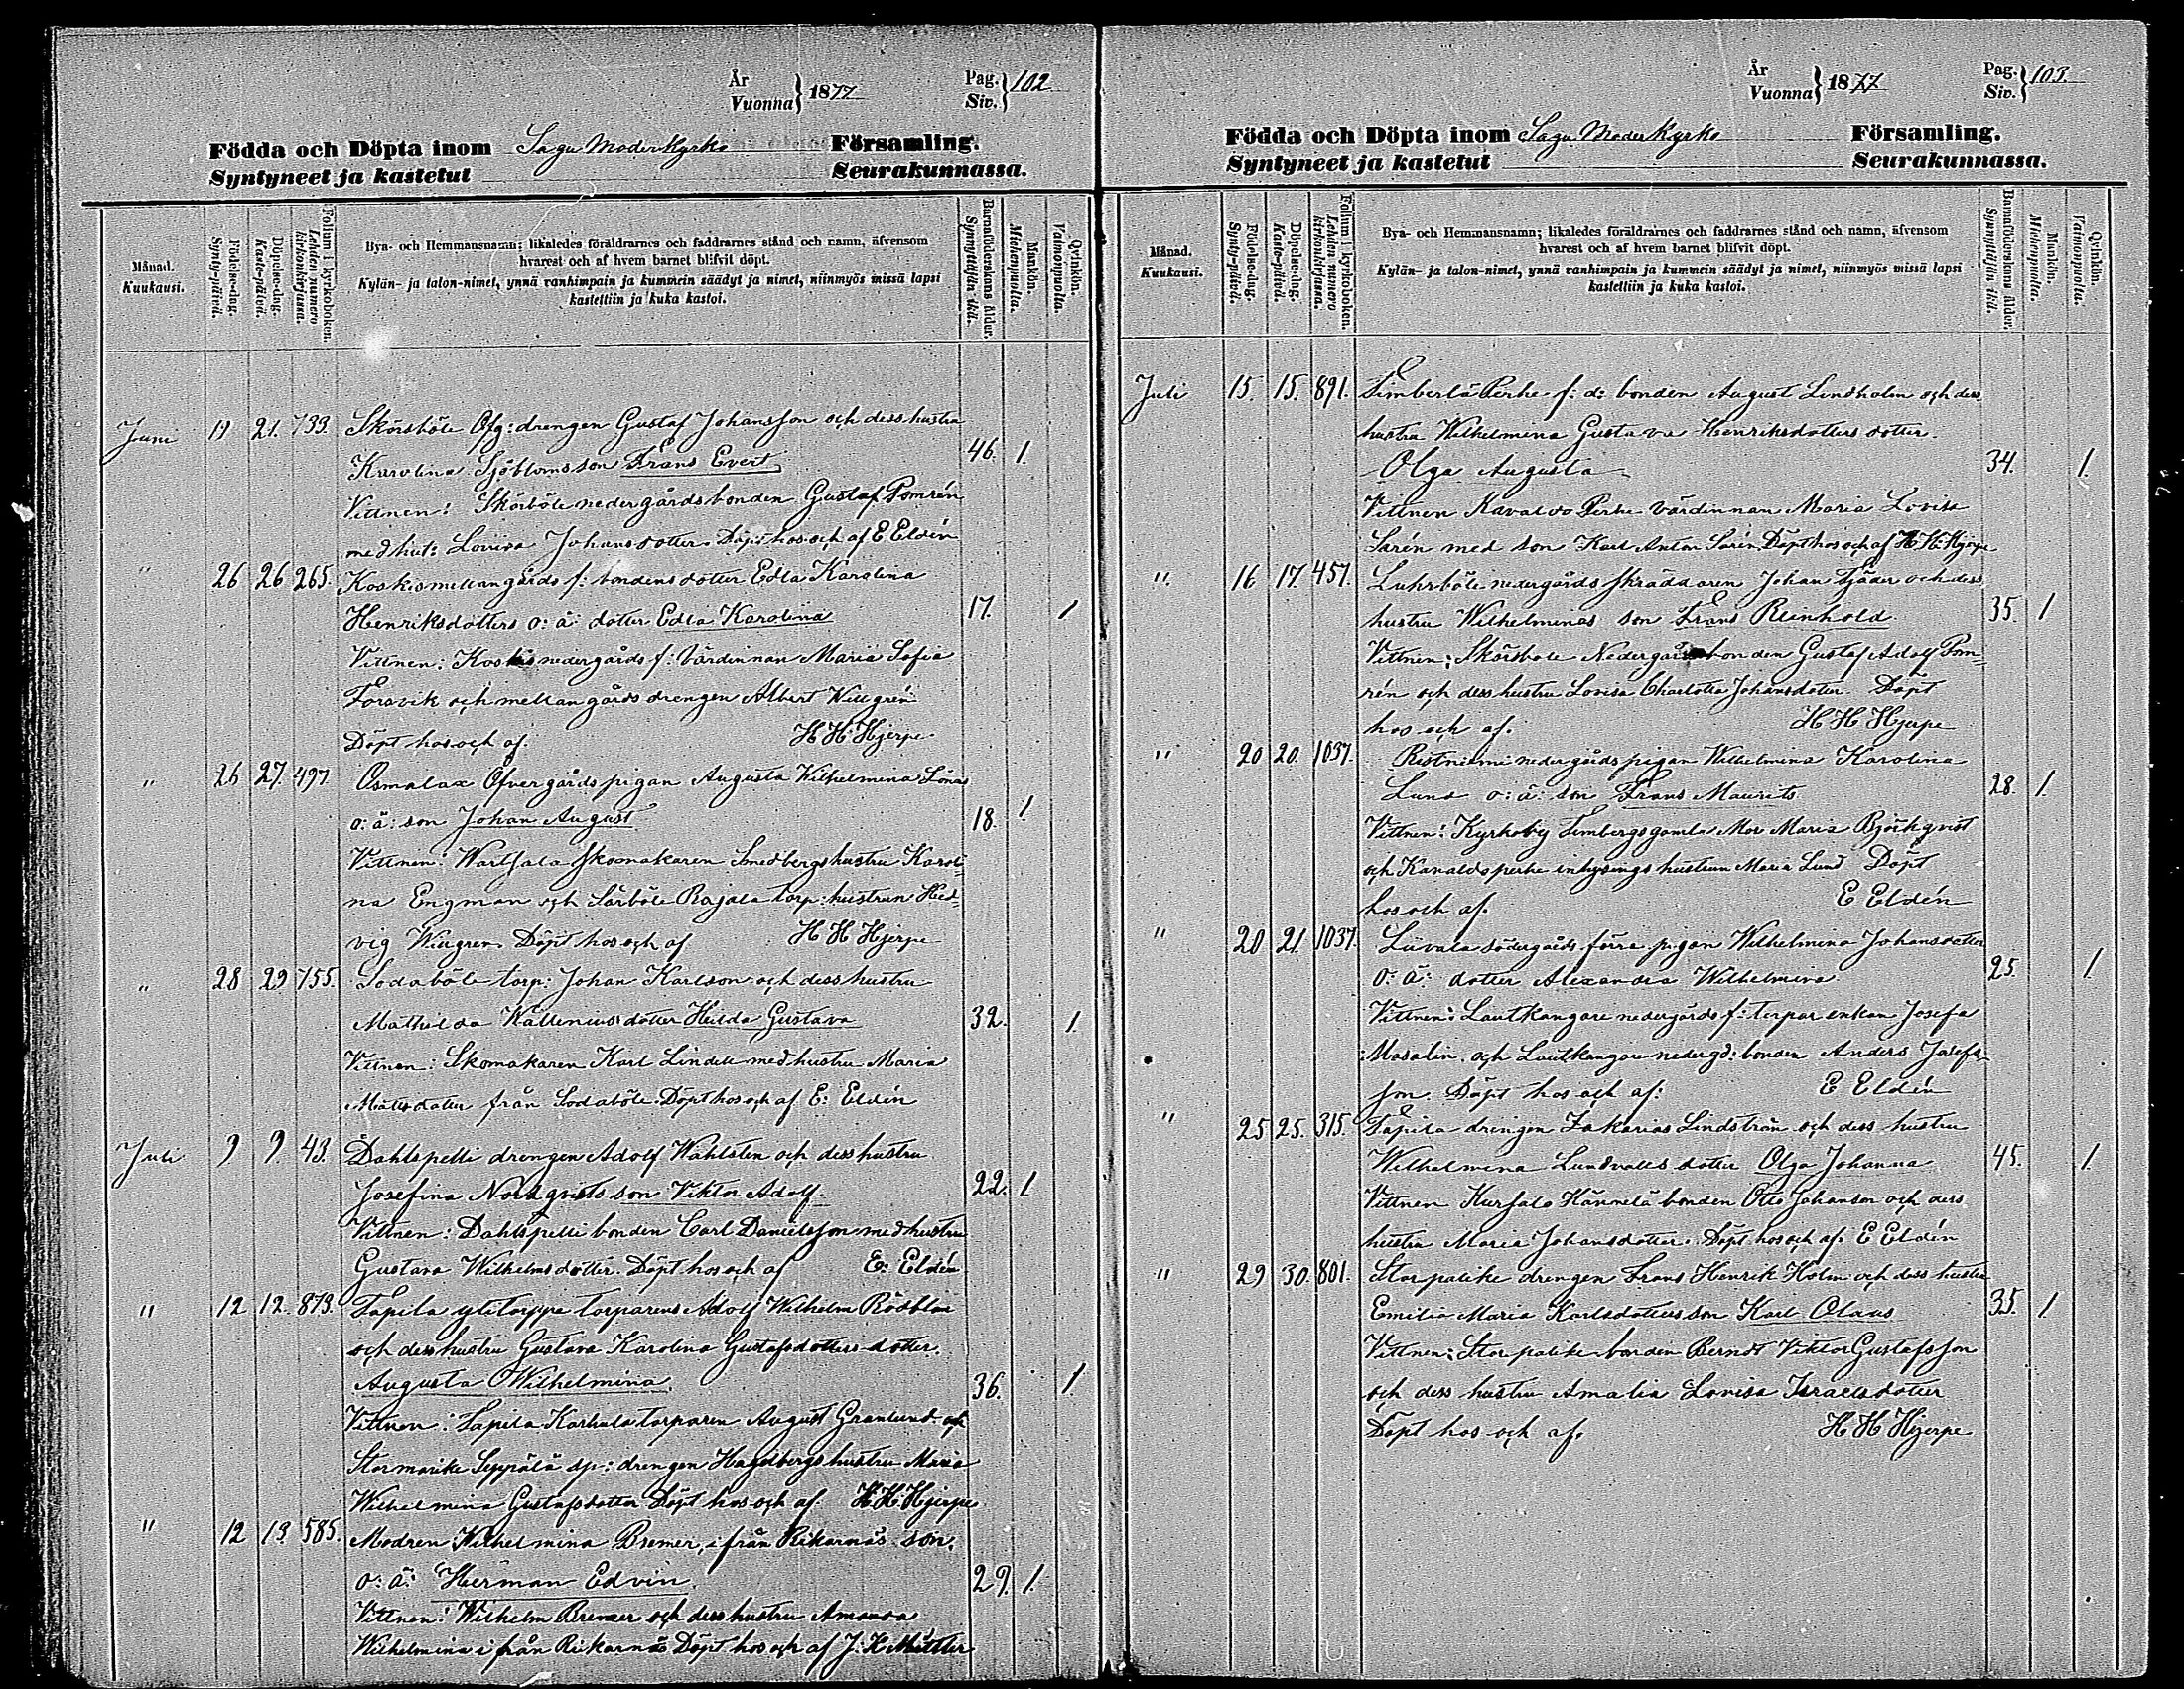 År
Vuonna } 1877
Pag.
Siv. } 102
Födda och Döpta inom Sagu Moderkyrko Församling.
Syntyneet ja kastetut Seurakunnassa.
Månad.
Kuukausi.
Födelse-dag.
Synty-päivä.
Döpelse-dag.
Kaste-päivä.
Folium i kyrkoboken.
Lehden numero kirkonkirjassa.
Bya- och Hemmansnamn; likaledes föräldrarnes och faddrarnes stånd och namn, äfvensom
hvarest och af hvem barnet blifvit döpt.
Kylän- ja talon-nimet, ynnä vanhimpain ja kummein säädyt ja nimet, niinmyös missä lapsi
kastettiin ja kuka kastoi.
Barnaföderskans ålder.
Synnyttäjän ikä.
Mankön.
Miehenpuolta.
Qvinkön.
Vaimonpuolta.
Juni 19 21. 733. Skörsböle Ofg: drengen Gustaf Johansson och dess hustru
Karolina Sjöbloms son Frans Evert 46. 1.
Vittnen: Skörböle nedergårds bonden Gustaf Pomrén
med hust: Lovisa Johansdotter. Döpt hos och af E Eldén
" 26 26 265. Koskis mellangårds f: bondens dotter Edla Karolina
Henriksdotters o: ä: dotter Edla Karolina 17. 1
Vittnen: Koskis nedergårds f: värdinnan Maria Sofia
Forsvik och mellangårds drengen Albert Willgrén
Döpt hos och af. H H: Hjerpe
" 26 27. 497 Osmalax Öfvergårds pigan Augusta Wilhelmina Lönns
o: ä: son Johan August 18. 1
Vittnen: Wartsala skomakaren Smedbergs hustru Karoli-
na Engman och Särböle Rajala torp: hustrun Hed-
vig Wiugren Döpt hos och af H H Hjerpe
" 28 29 755. Sodaböle torp: Johan Karlson och dess hustru
Mathilda Källenius dotter Hilda Gustava 32. 1.
Vittnen: Skomakaren Karl Lindell med hustru Maria
Matsdotter från Sodaböle. Döpt hos och af E: Eldén
Juli 9 9. 43. Dahlspelti drengen Adolf Wahlsten och dess hustru
Josefina Nordqvists son Viktor Adolf. 22. 1.
Vittnen: Dahlspelti bonden Carl Danielsson med hustru
Gustava Wilhelmsdotter. Döpt hos och af E: Eldén
" 12 12. 879. Tapila ylitorppa torparens Adolf Wilhelm Rödblom
och dess hustru Gustava Karolina Gustafsdotters dotter.
Augusta Wilhelmina 36. 1
Vittnen: Tapila Karhula torparen August Granlund och
Stormarike Seppälä dp: drengen Hagelbergs hustru Maria
Wilhelmina Gustafsdotter Döpt hos och af. H H: Hjerpe
" 12 13. 585. Modren Wilhelmina Bremer, ifrån Rikarnäs son.
o: ä: Herman Edvin. 29. 1.
Vittnen: Wilhelm Bremer och dess hustru Amanda
Wilhelmina ifrån Rikarnäs Döpt hos och af J. K
År
Vuonna } 1877
Pag.
Siv. } 103.
Födda och Döpta inom Sagu Moder Kyrko Församling.
Syntyneet ja kastetut Seurakunnassa.
Månad.
Kuukausi.
Födelse-dag.
Synty-päivä.
Döpelse-dag.
Kaste-päivä.
Folium i kyrkoboken.
Lehden numero kirkonkirjassa.
Bya- och Hemmansnamn; likaledes föräldrarnes och faddrarnes stånd och namn, äfvensom
hvarest och af hvem barnet blifvit döpt.
Kylän- ja talon-nimet, ynnä vanhimpain ja kummein säädyt ja nimet, niinmyös missä lapsi
kastettiin ja kuka kastoi.
Barnaföderskans ålder.
Synnyttäjän ikä.
Mankön.
Miehenpuolta.
Qvinkön.
Vaimonpuolta.
Juli 15. 15. 891. Timberlä Perhe f: d: bonden August Lindholm och dess
hustru Wilhelmina Gustava Henriksdotters dotter.
Olga Augusta 34. 1.
Vittnen Kavaldo Perhe värdinnan Maria Lovisa
Sarén med son Karl Anton Sarén. Döpt hos och af H H: Hjerpe
" 16 17. 457. Luhrböle nedergårds skräddaren Johan Tjäder och dess
hustru Wilhelminas son Frans Reinhold. 35. 1
Vittnen: Skörsböle Nedergårds bonden Gustaf Adolf Pom-
rén och dess hustru Lovisa Charlotta Johansdotter Döpt
hos och af. H H Hjerpe
" 20 20. 1037. Ristniemi nedergårds pigan Wilhelmina Karolina
Lund o: ä: son Frans Maurits 28. 1.
Vittnen: Kyrkoby Timbergs gamla Mor Maria Björkqvist
och Kavaldo perhe inhysings hustrun Maria Lund Döpt
hos och af. E Eldén
" 20 21. 1037. Liivala södergårds förra pigan Wilhelmina Johansdotter
o: ä: dotter Alexandra Wilhelmina. 25. 1.
Vittnen: Lautkangare nedergårds f: torpar enkan Josefa
Masalin. och Lautkangare nedergd: bonden Anders Josefs-
son. Döpt hos och af: E Eldén
" 25 25. 315. Tapila drengen Zakarias Lindström och dess hustru
Wilhelmina Lundvalls dotter Olga Johanna 45. 1.
Vittnen Kursalo Hännelä bonden Otto Johanson och dess
hustru Maria Johansdotter. Döpt hos och af. E Eldén
" 29 30. 801. Storpatike drengen Frans Henrik Holm och dess hustru
Emilia Maria Karlsdotters son Karl Olaus 35. 1.
Vittnen: Storpatike bonden Berndt Viktor Gustafsson
och dess hustru Amalia Lovisa Israelsdotter
Döpt hos och af. H H Hjerpe